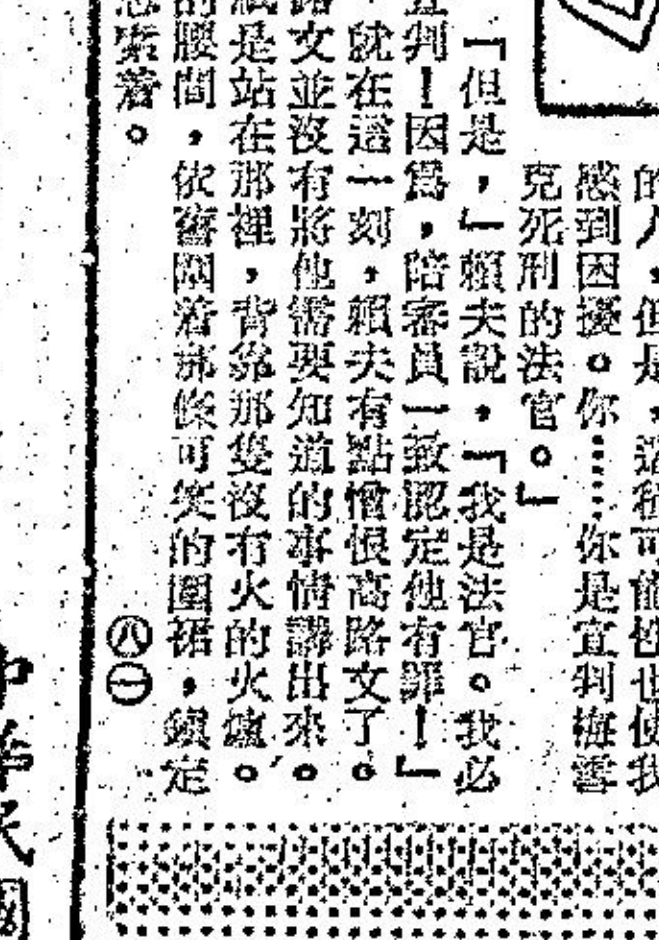 的人，但是，這種可能性也使我
感到困擾。你……你是宣判梅雪
克死刑的法官。」
「但是，」賴夫說，「我是法官。我必
宣判！因爲，陪審員一致認定他有罪！」
，就在這一刻，賴夫有點憎恨高路文了。
路文並沒有將他需要知道的事情講出來。
祇是站在那裡，背靠那隻沒有火的火爐。
的腰間，依舊圍着那條可笑的圍裙，鎮定
思索着。
㊇㊀
中華民國